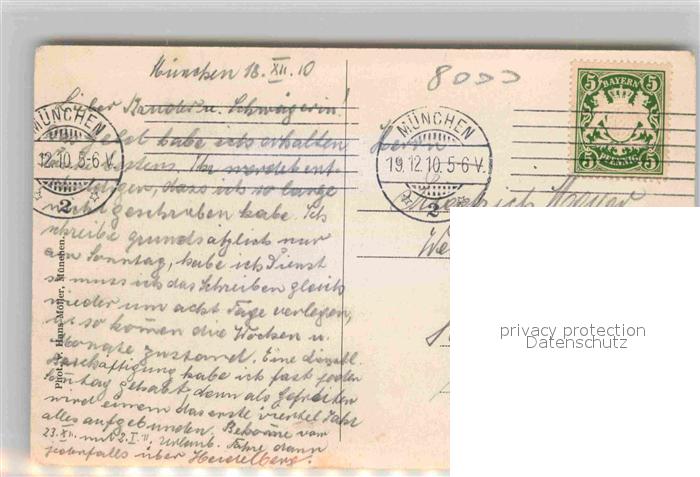 München 18. XII. 10
Lieber Bruder u. Schwägerin!
Geld habe ich erhalten
bestens. Ihr werdet ent-
schuldigen, dass ich so lange
nicht geschrieben habe. Ich
schreibe grundsätzlich nur
am Sonntag, habe ich Dienst
so muss ich das Schreiben gleich
wieder um acht Tage verlegen,
u. so komen die Wochen u.
Monate zustand. Eine dienstl.
Beschäftigung habe ich fast jeden
Sonntag gehabt, denn als Gefreiten
wird einem das erste viertel Jahr
alles aufgebunden. Bekome vom
23. XII. mit 2. I. 11. Urlaub. Fahre dann
jedenfalls über Heidelberg.
Phot. v. Hans Möller, München.
MÜNCHEN
12.10. 5-6 V.
2
8000
MÜNCHEN
19.12.10. 5-6 V.
2
5 5
BAYERN
5 PFENNIG 5
Herrn
We
privacy protection
Datenschutz